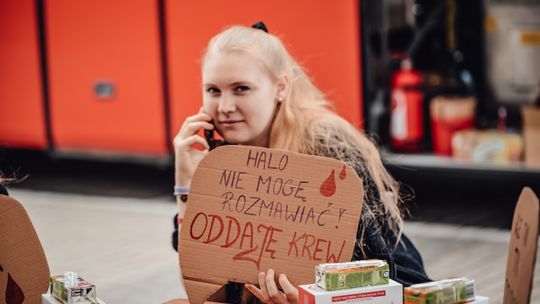 HALO
NIE MOGĘ
ROZMAWIAĆ!
ODDAJĘ KREW